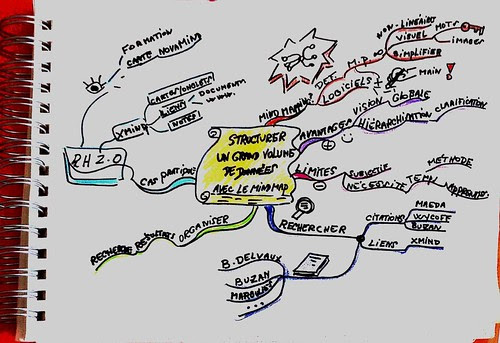 STRUCTURER
UN GRAND VOLUME
DE DONNÉES
AVEC LE MINDMAP
MIND MAPPING
DEF. M.P
NON-LINÉAIRE
VISUEL
MOTS
IMAGES
SIMPLIFIER
LOGICIELS
MAIN !
AVANTAGES
VISION GLOBALE
HIÉRARCHISATION
CLARIFICATION
LIMITES
SUBJECTIF
NÉCESSITE
MÉTHODE
RECHERCHER
CITATIONS
MAEDA
WYCOFF
BUZAN
LIENS
XMIND
B. DELVAUX
BUZAN
...
ORGANISER
RECHERCHE
CAS PRATIQUE
RH 2.0
FORMATION
CARTE NOVAMIND
XMIND
CARTES/ONGLETS
LIENS
DOCUMENTS
NOTES